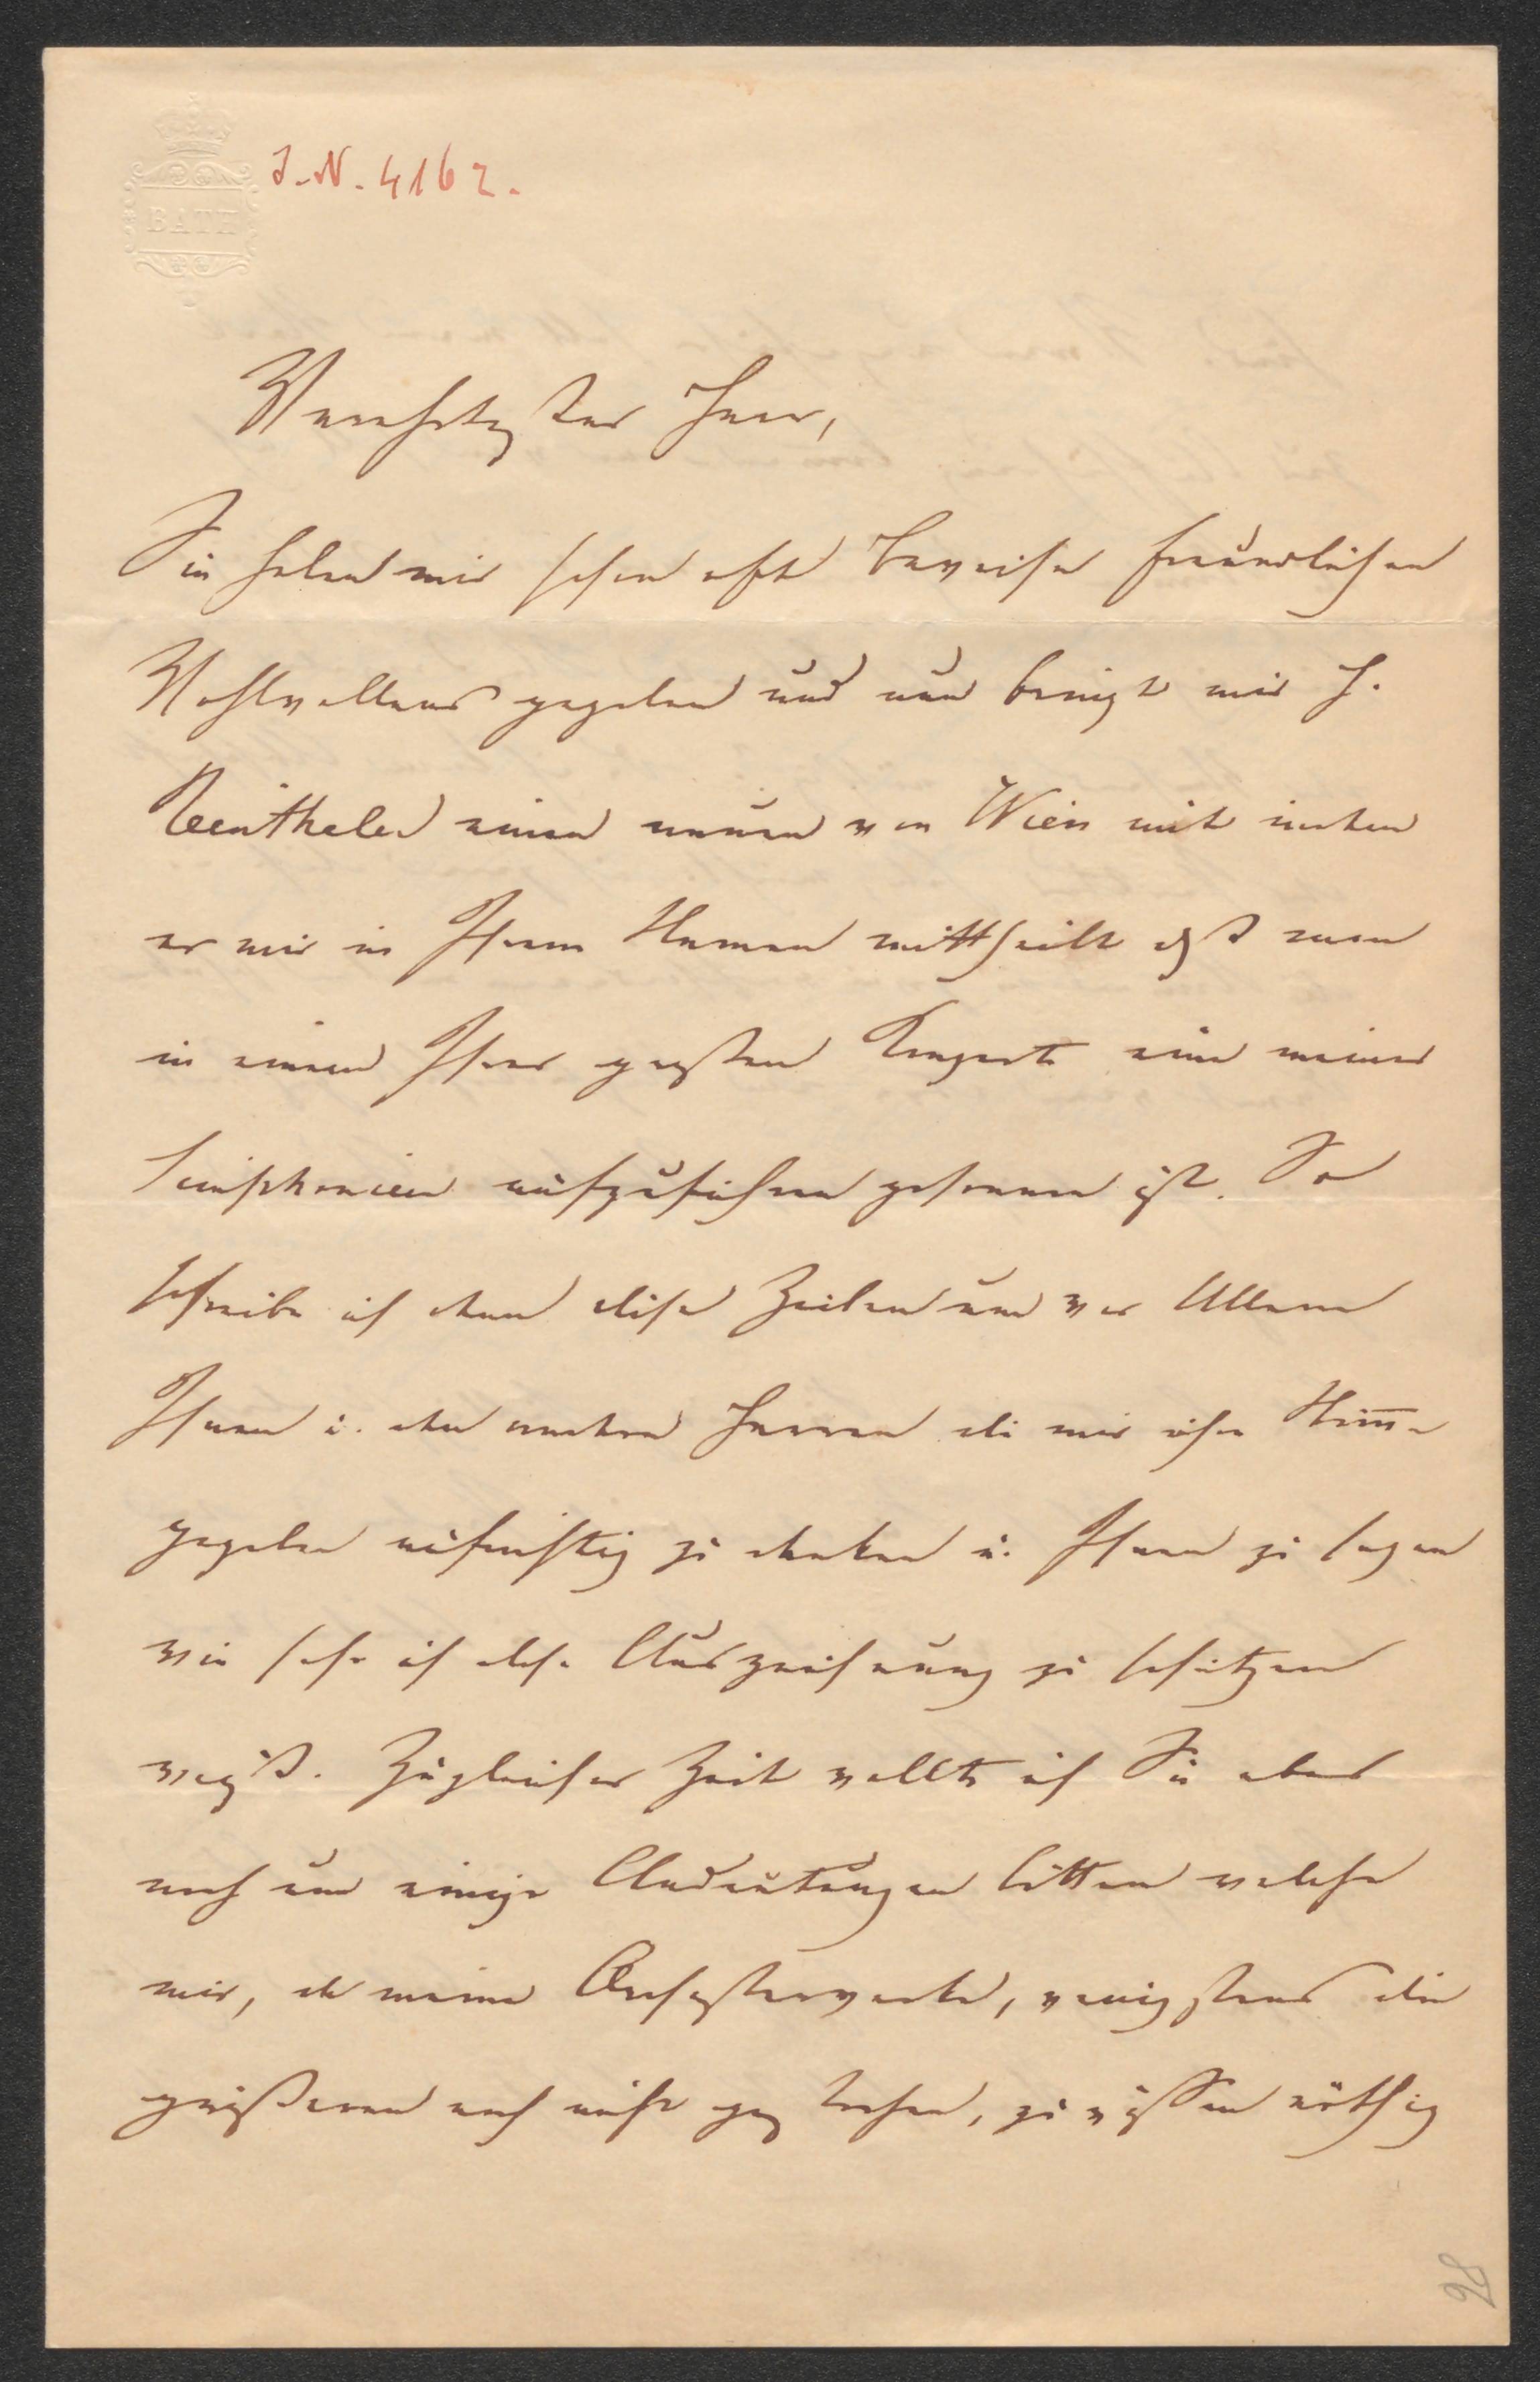 BATH
I.N. 4162.
Verehrtester Herr,
Sie haben mir schon oft Beweise freundlichen
Wohlwollens gegeben und nun bringt mir H.
einen neuen von Wien mit indem
er mir in Ihrem Namen mittheilt daß man
in einem Ihrer großen Konzerte eine meiner
Simphonien aufzuführen gesonnen ist. So
schreibe ich denn diese Zeilen um vor Allem
Ihnen u. den andren Herren die mir ihre Stim̅e
gegeben aufrichtig zu danken u. Ihnen zu sagen
wie sehr ich diese Auszeichnung zu schätzen
weiß. Zugleicher Zeit wollte ich Sie aber
noch um einige Andeutungen bitten welche
mir, da meine Orchesterwerke, wenigstens die
größeren noch nicht gestochen, zu wissen nöthig
26